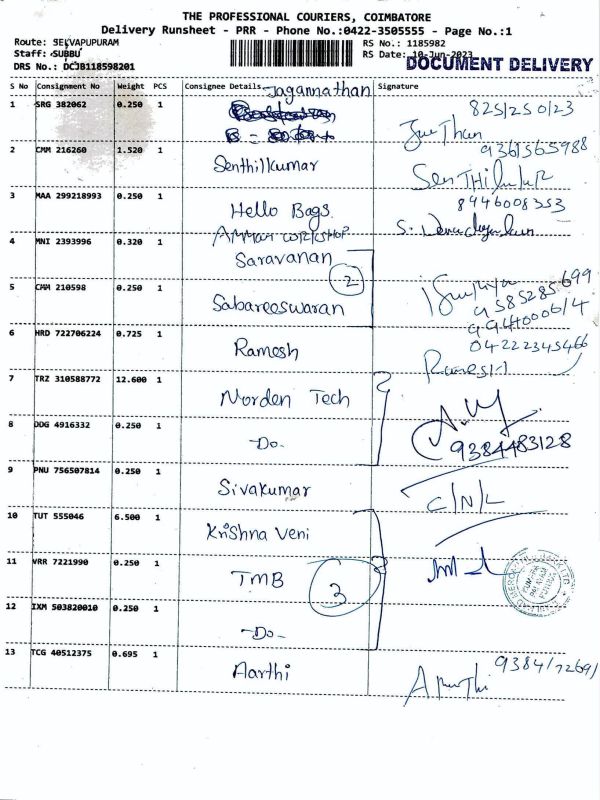 THE PROFESSIONAL COURIERS, COIMBATORE
Delivery Runsheet - PRR - Phone No.:0422-3505555 - Page No.:1
Route: SELVAPUPURAM
RS No.: 1185982
Staff: SUBBU
RS Date: 10-Jun-2023
DRS No.: DCJB118598201
DOCUMENT DELIVERY
S No Consignment No Weight PCS Consignee Details Signature
Jagannathan
1 SRG 382062 0.250 1
825/250/23
2 CMM 216260 1.520 1 Senthilkumar
9361565988
3 MAA 299218993 0.250 1 Hello Bags
8946008353
4 MNI 2393996 0.320 1
AMMAN WORKSHOP
Saravanan
2
5 CMM 210598 0.250 1 Sabareeswaran
9585285699
6 HRD 722706224 0.725 1 Ramesh
04222345466
Ramesh
7 TRZ 310588772 12.600 1 Norden Tech
8 DDG 4916332 0.250 1 -Do-
9384483128
9 PNU 756507814 0.250 1 Sivakumar
C/N/L
10 TUT 555046 6.500 1 Krishna Veni
11 VRR 7221990 0.250 1 TMB
3
12 IXM 503820010 0.250 1 -Do-
13 TCG 40512375 0.695 1 Aarthi